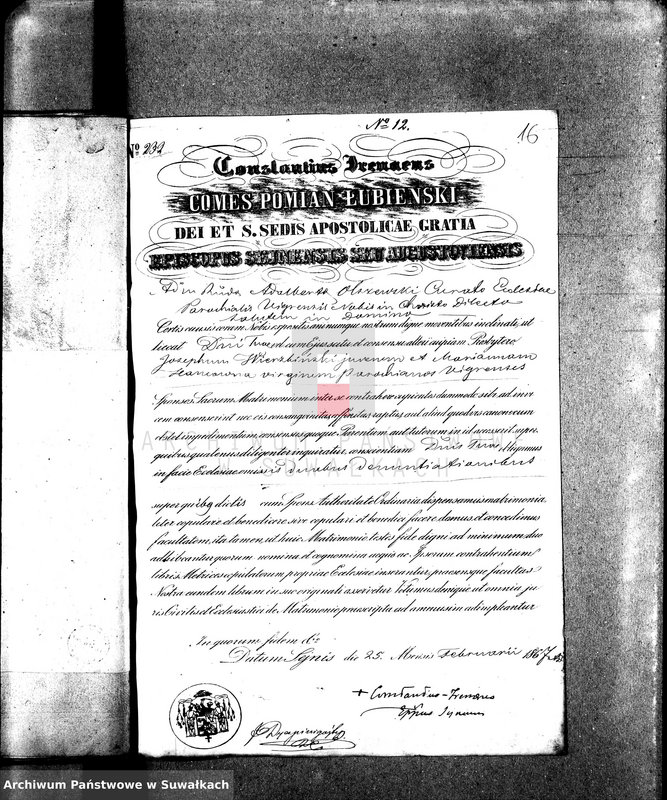 Nº 12.
16
Nº 232
Constantius Irenaeus
COMES POMIAN ŁUBIENSKI
DEI ET S. SEDIS APOSTOLICAE GRATIA
EPISCOPUS SEJNENSIS SEU AUGUSTOVIENSIS
Adalberto Olszewski Curato Ecclesiae
Parochialis Vigrensis Nobis in Christo Dilecto
Salutem in Domino
Certis causis coram Nobis expositis animumque nostrum digne moventibus inclinati, ut
liceat cum Ejus scitu et consensu alteri cuipiam Presbytero
Josephum Wierzbinski juvenem et Mariannam
virginem Parochianos Vigrenses
Sponsos Sacrum Matrimonium inter se contrahere cupientes dummodo sibi ad invi-
cem consenserint nec vis consanguinitas affinitas raptus aut aliud quodvis canonicum
obstet impedimentum, consensus quoque Parentum aut tutorum in id accesserit super
quibus qualenus diligenter inquiratur, conscientiam
in facie Ecclesiae omissis duabus denuntiationibus
super quibus dictis cum Spons Authoritate Ordinaria dispensamus matrimonia-
liter copulare et benedicere sive copulari et benedici facere damus et concedimus
facultatem, ita tamen, ut huic Matrimonio testes fide digni ad minimum duo
adhibeantur quorum nomina et cognomina aeque ac Ipsorum contrahentium
libris Metrices copulatorum propriae Ecclesiae inserantur, praesensque facultas
Nostra eundem librum in suo originali asservetur. Volumus denique ut omnia ju-
ris Civilis et Ecclesiastici de Matrimonio praescripta ad amussim adimpleantur
In quorum fidem d.
Datum Sejnis die 25. Mensis Februarii 1867
+ Constantius-Irenaeus
Eppus Sejnensis
ARCHIWUM PAŃSTWOWE
W SUWAŁKACH
Archiwum Państwowe w Suwałkach